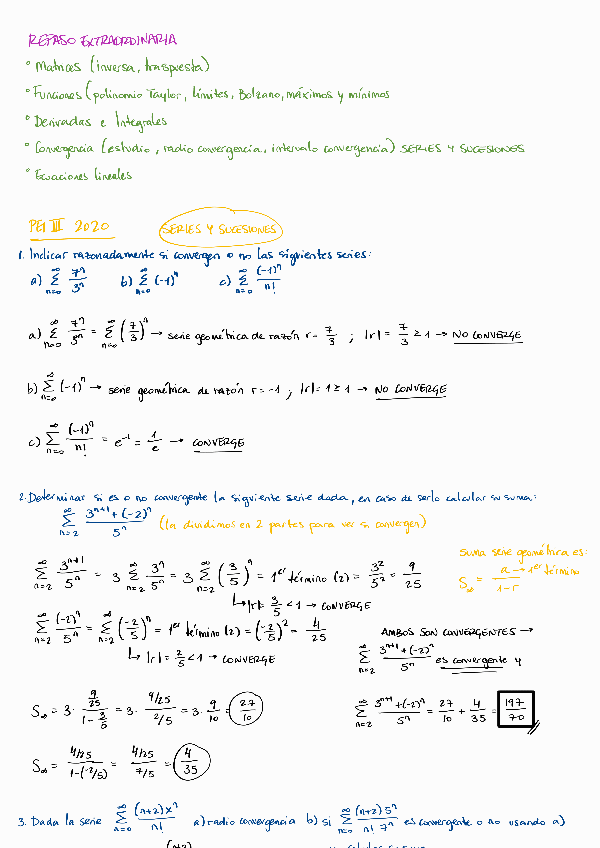 REPASO EXTRAORDINARIA
° Matrices (inversa, traspuesta)
° Funciones (polinomio Taylor, límites, Bolzano, máximos y mínimos
° Derivadas e Integrales
° Convergencia (estudio, radio convergencia, intervalo convergencia) SERIES Y SUCESIONES
° Ecuaciones lineales
PEI III 2020 SERIES Y SUCESIONES
1. Indicar razonadamente si convergen o no las siguientes series:
a) ∞ Σ n=0 7^n / 3^n b) ∞ Σ n=0 (-1)^n c) ∞ Σ n=0 (-1)^n / n!
a) ∞ Σ n=0 7^n / 3^n = ∞ Σ n=0 (7/3)^n → serie geométrica de razón r = 7/3 ; |r| = 7/3 ≥ 1 → NO CONVERGE
b) ∞ Σ n=0 (-1)^n → serie geométrica de razón r = -1 ; |r| = 1 ≥ 1 → NO CONVERGE
c) ∞ Σ n=0 (-1)^n / n! = e^-1 = 1/e → CONVERGE
2. Determinar si es o no convergente la siguiente serie dada, en caso de serlo calcular su suma:
∞ Σ n=2 3^(n+1) + (-2)^n / 5^n (la dividimos en 2 partes para ver si convergen)
Suma serie geométrica es:
S∞ = a → 1er término / 1-r
∞ Σ n=2 3^(n+1) / 5^n = 3 ∞ Σ n=2 3^n / 5^n = 3 ∞ Σ n=2 (3/5)^n = 1er término (2) = 3^2 / 5^2 = 9/25
↳ |r| = 3/5 < 1 → CONVERGE
∞ Σ n=2 (-2)^n / 5^n = ∞ Σ n=2 (-2/5)^n = 1er término (2) = (-2/5)^2 = 4/25
↳ |r| = 2/5 < 1 → CONVERGE
AMBOS SON CONVERGENTES →
∞ Σ n=2 3^(n+1) + (-2)^n / 5^n es convergente y
S∞ = 3 · 9/25 / 1 - 3/5 = 3 · 9/25 / 2/5 = 3 · 9/10 = 27/10
∞ Σ n=2 3^(n+1) + (-2)^n / 5^n = 27/10 + 4/35 = 197/70
S∞ = 4/25 / 1-(-2/5) = 4/25 / 7/5 = 4/35
3. Dada la serie ∞ Σ n=0 (n+2) x^n / n! a) radio convergencia b) si ∞ Σ n=0 (n+2) 5^n / n! 7^n es convergente o no usando a)
(n+2)